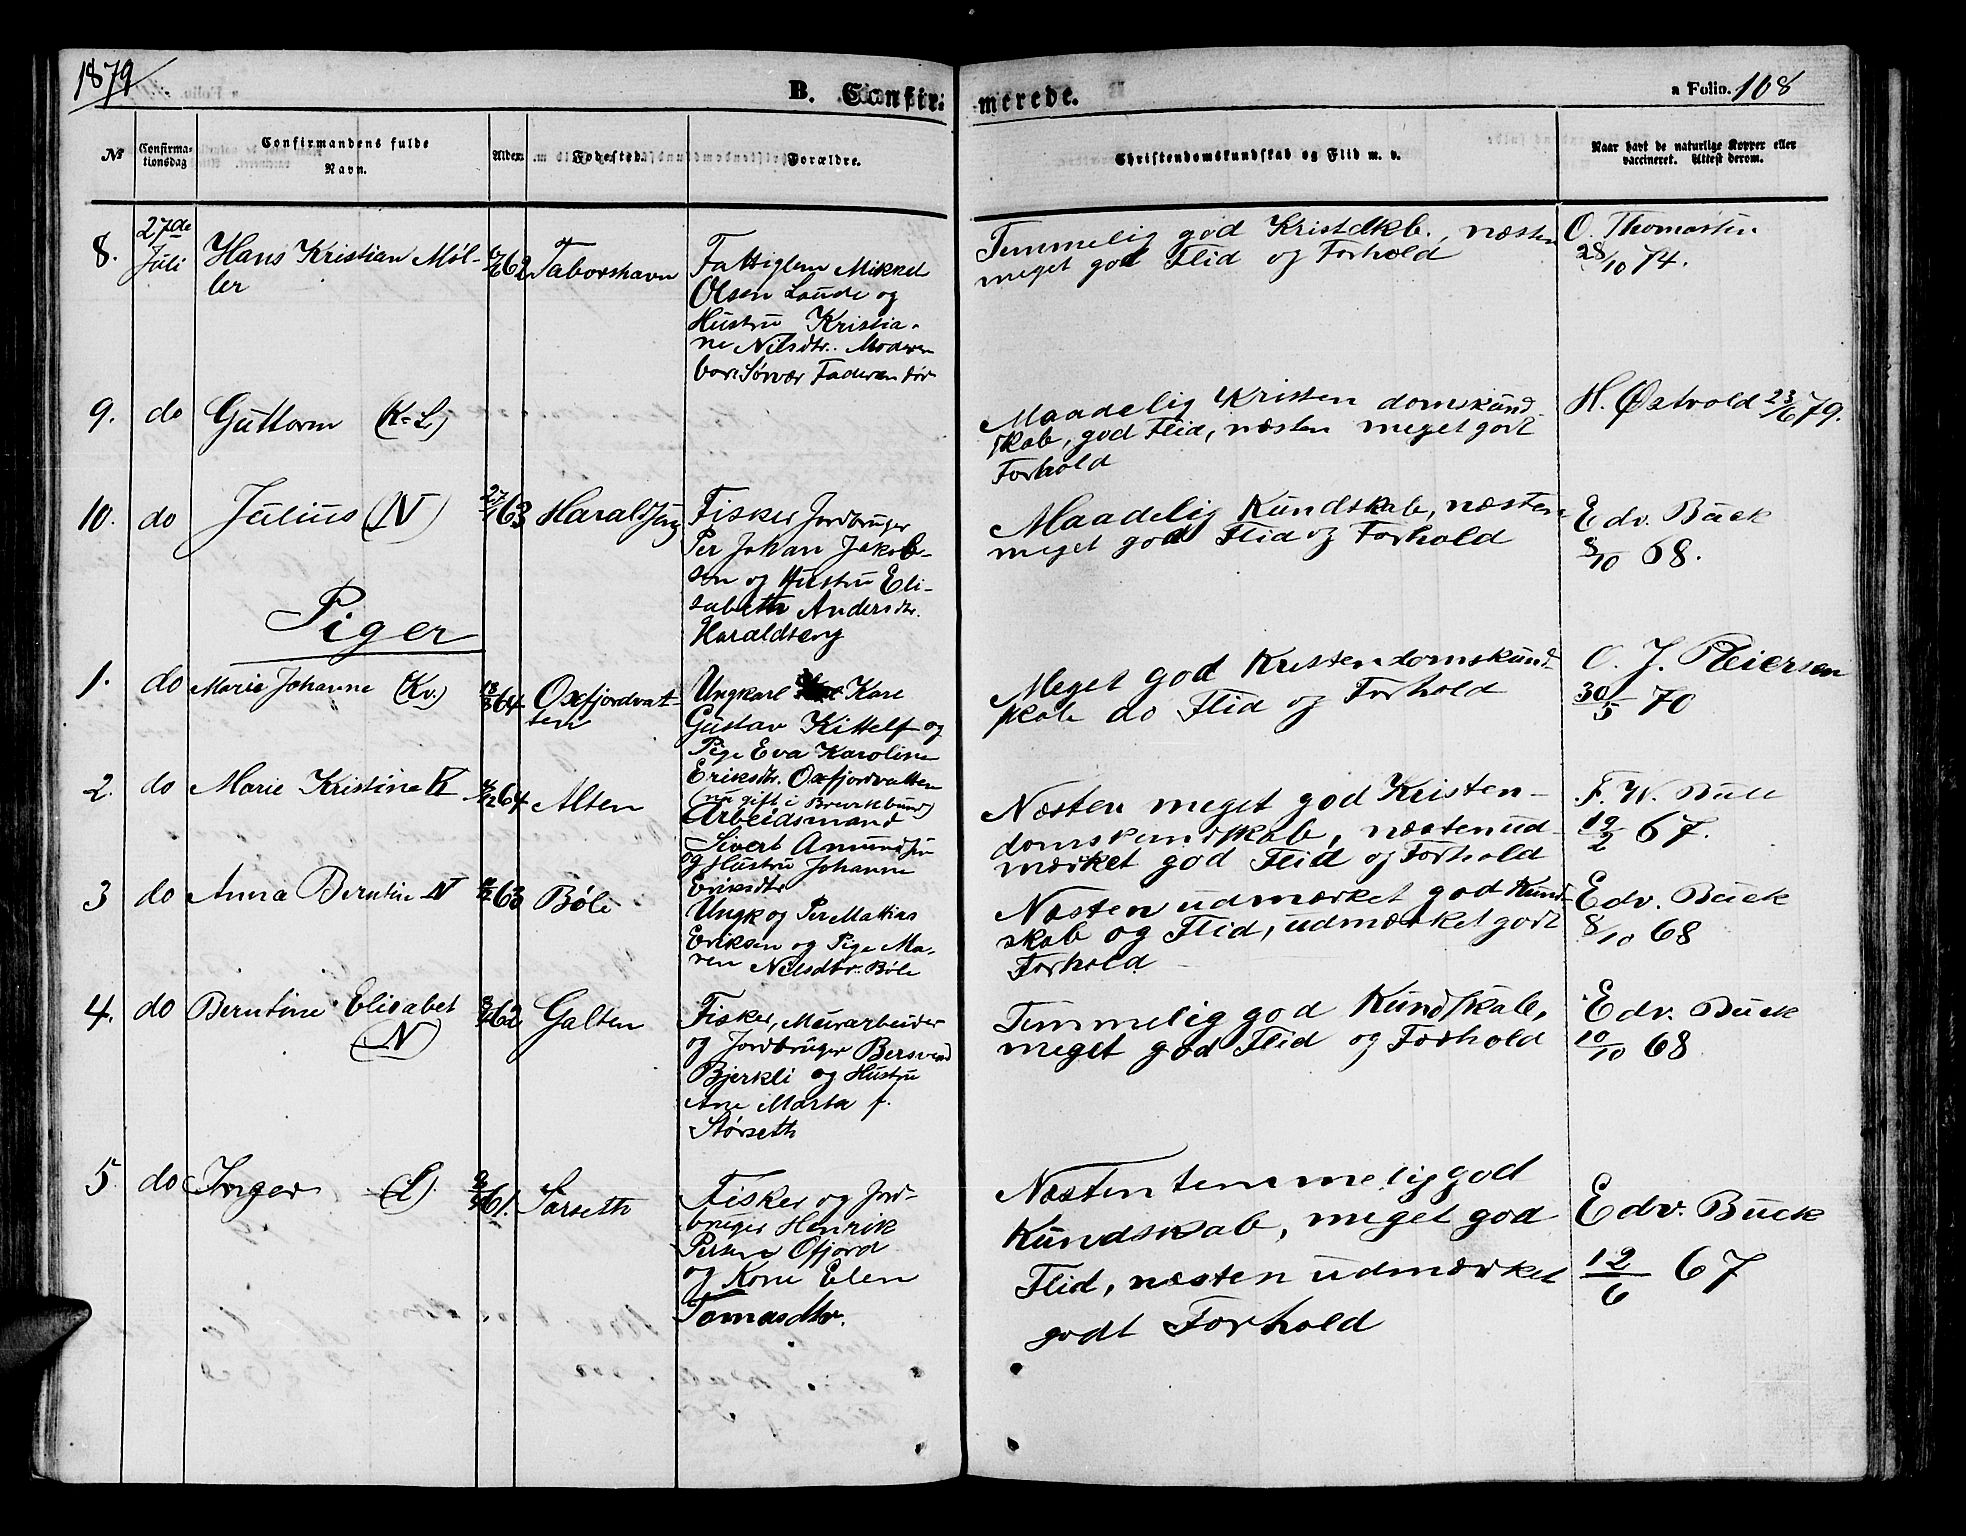 1879
B. Confirmerede.
a Folio. 108
No
Confirmationsdag
Confirmandens fulde Navn.
Alder.
Fødested.
Forældre.
Christendomskundskab og Flid m. v.
Naar havt de naturlige Kopper eller vaccineret. Attest derom.
8.
27de Juli
Hans Kristian Møl-
ler
62
Taborshavn
Fattiglem Mikkel
Olsen Laude og
Hustru Kristia-
ne Nilsdtr. Moderen
bor i Sørvær Faderen dør
Temmelig god Kristdkb., næsten
meget god Flid og Forhold
O. Thomassen
28/10 74.
9.
do
Guttorm (K-L)
Maadelig Kristen domskund-
skab, god Flid, næsten meget godt
Forhold
H. Østvold 23/6 79.
10.
do
Julius (N)
63
Haraldseng
Fisker Jordbruger
Per Johan Jakob-
sen og Hustru Eli-
sabeth Andersdtr.
Haraldseng
Maadelig Kundskab, næsten
meget god Flid og Forhold
Edv. Buck
8/10 68.
Piger
1.
do
Marie Johanne (Kv.)
64
Oxfjordvat-
ten
Ungkarl Kare
Gustav Kittelf og
Pige Eva Karoline
Eriksdtr. Oxfjordvatten
(nu gift i
Meget god Kristendomskund-
skab do Flid og Forhold
O. J. Peiersen
30/5 70
2.
do
Marie Kristine K
64
Alten
Arbeidsmand
Sivert Amundsen
og Hustru Johanne
Eriksdtr
Næsten meget god Kristen-
domskundskab, næsten ud-
mærket god Flid og Forhold
F. W. Bull
19/2 67.
3
do
Anna Berntine N
63
Bøle
Ungk og Per Mathias
Eriksen og Pige Ma-
ren Nilsdtr. Bøle
Næsten udmærket god Kund-
skab og Flid, udmærket godt
Forhold
Edv. Buck
8/10 68
4.
do
Berntine Elisabet
(N)
62
Galten
Fisker, Murarbeider
og Jordbruger Bersvend
Bjerkli og Hustru
Ane Marta f.
Størseth
Temmelig god Kundskab,
meget god Flid og Forhold
Edv. Buck
10/10 68
5.
do
Inger (L).
61.
Sarseth
Fisker og Jord-
bruger Henrik
Persen Ofjord
og Kone Elen
Tomasdtr.
Næsten temmelig god
Kundskab, meget god
Flid, næsten udmærket
godt Forhold
Edv. Buck
12/6 67